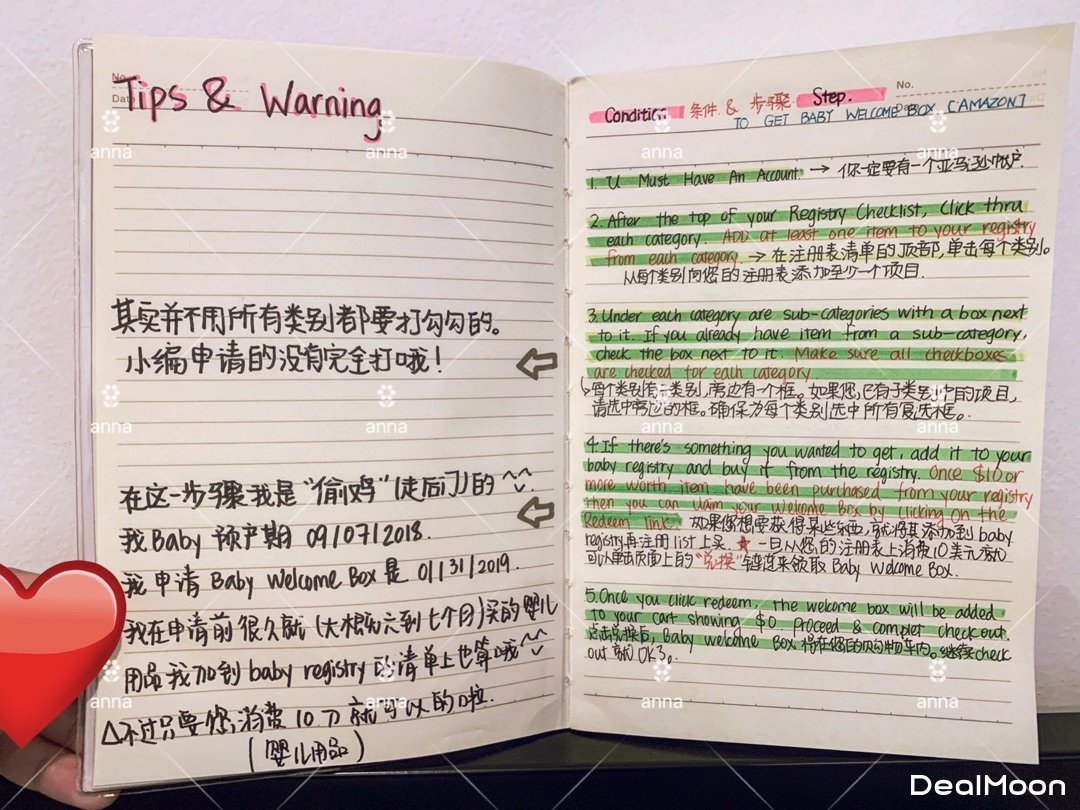 No.
Date
Tips & Warning
其实并不用所有类别都要打勾勾的。
小编申请的没有完全打哦！
在这一步骤我是"偷鸡"(走后门)的 ^^
我Baby 预产期 09/07/2018.
我申请 Baby Welcome Box 是 01/31/2019.
我在申请前很久就(大概六到七个月)买的婴儿
用品我加到 baby registry 的清单上也算哦^^
△不过只要您消费 10 刀就可以的啦.
(婴儿用品)
No.
Date
Condition 条件 & 步骤 Step.
TO GET BABY WELCOME BOX [AMAZON]
1. U Must Have An Account. → 你一定要有一个亚马逊帐户.
2. After the top of your Registry Checklist, Click thru
each category. ADD at least one item to your registry
from each category → 在注册表清单的顶部,单击每个类别。
从每个类别向您的注册表添加至少一个项目.
3. Under each category are sub-categories with a box next
to it. If you already have item from a sub-category,
check the box next to it. Make sure all checkboxes
are checked for each category.
↳每个类别有子类别,旁边有一个框。如果您已有子类别中的项目,
请选中旁边的框。确保为每个类别选中所有复选框。
4. If there's something you wanted to get, add it to your
baby registry and buy it from the registry. Once $10 or
more worth item have been purchased from your registry
then you can claim your Welcome Box by clicking on the
Redeem link. 如果你想要获得某些东西,就将其添加到 baby
registry再注册 list 上买. ★ 一旦从您的注册表上消费10美元就
可以单击页面上的"兑换"链接来领取 Baby Welcome Box.
5. Once you click redeem, the welcome box will be added
to your cart showing $0. Proceed & complet check out.
点击兑换后, Baby welcome Box 将在您的购物车内。继续check
out 就OK了。
anna
anna
anna
anna
anna
anna
anna
anna
anna
anna
anna
anna
DealMoon